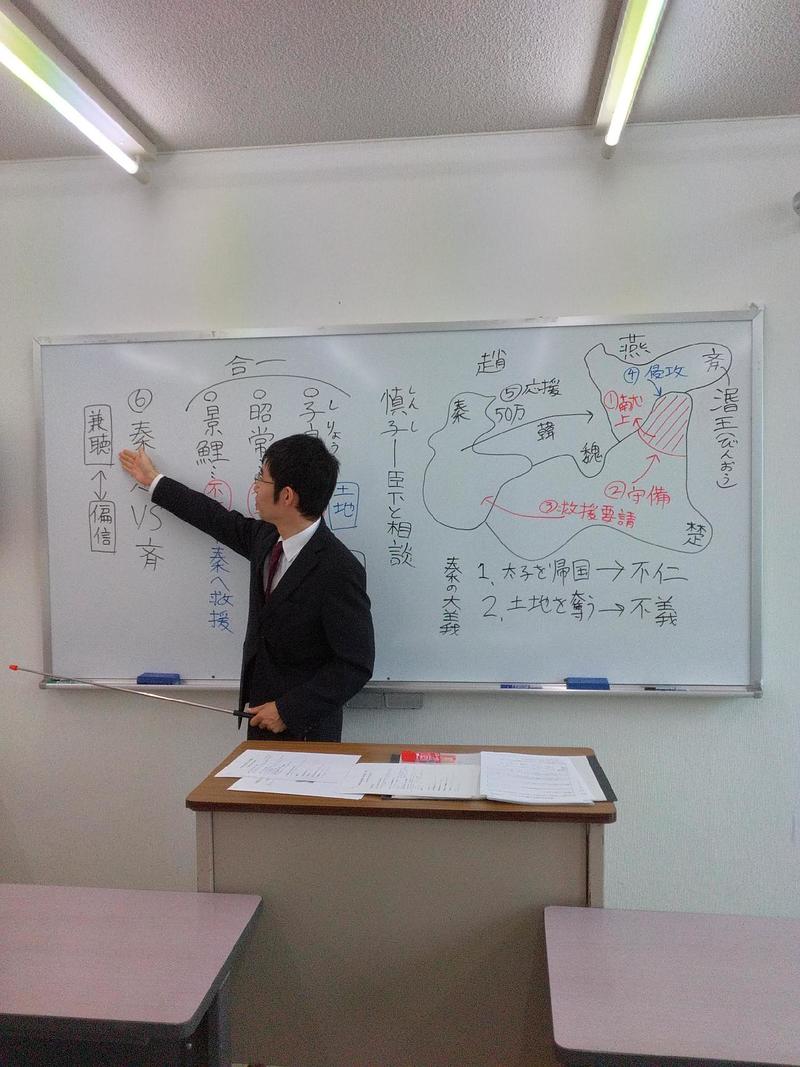 燕
斉
趙
④侵攻
湣王(びんおう)
①献上
⑤応援
50万
秦
韓
魏
②守備
③救援要請
楚
秦の大義
1. 太子を帰国→不仁
2. 土地を奪う→不義
しんし
慎子―臣下と相談
合一
しりょう
○子
土地
○昭常
○景鯉…不
秦へ救援
⑥秦
VS
斉
兼聴
↕
偏信